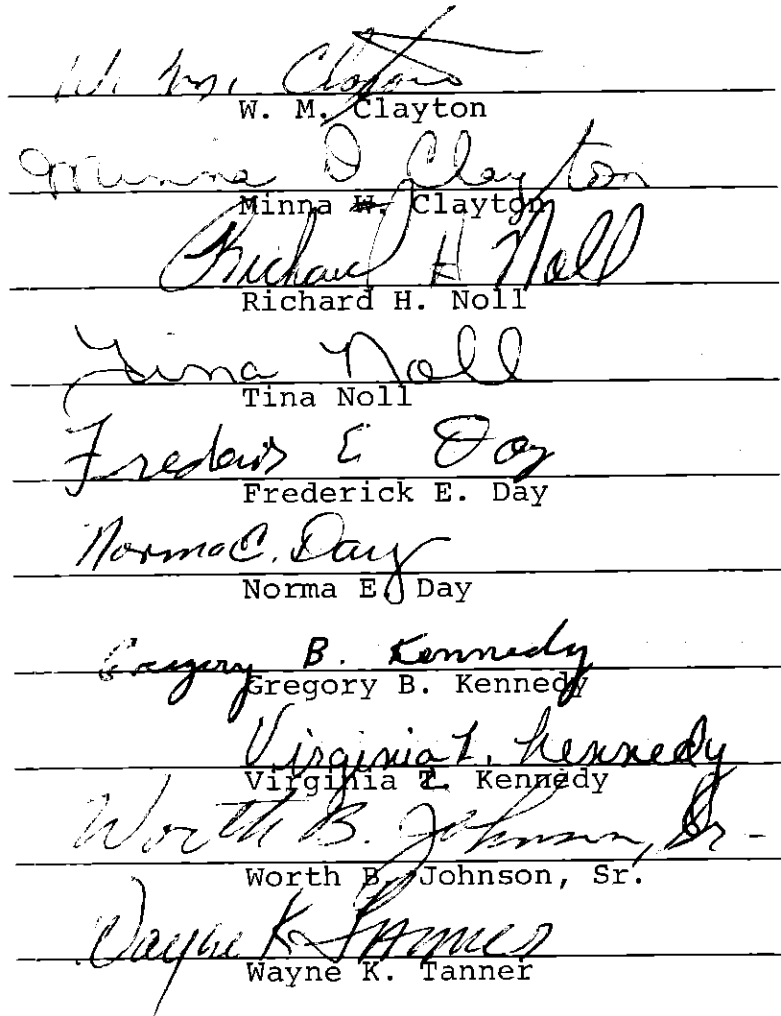 W. M. Clayton
W. M. Clayton
Minna D Clayton
Minna W. Clayton
Richard H Noll
Richard H. Noll
Tina Noll
Tina Noll
Frederick E Day
Frederick E. Day
Norma C. Day
Norma E. Day
Gregory B. Kennedy
Gregory B. Kennedy
Virginia L. Kennedy
Virginia L. Kennedy
Worth B. Johnson, Sr.
Worth B. Johnson, Sr.
Wayne K. Tanner
Wayne K. Tanner